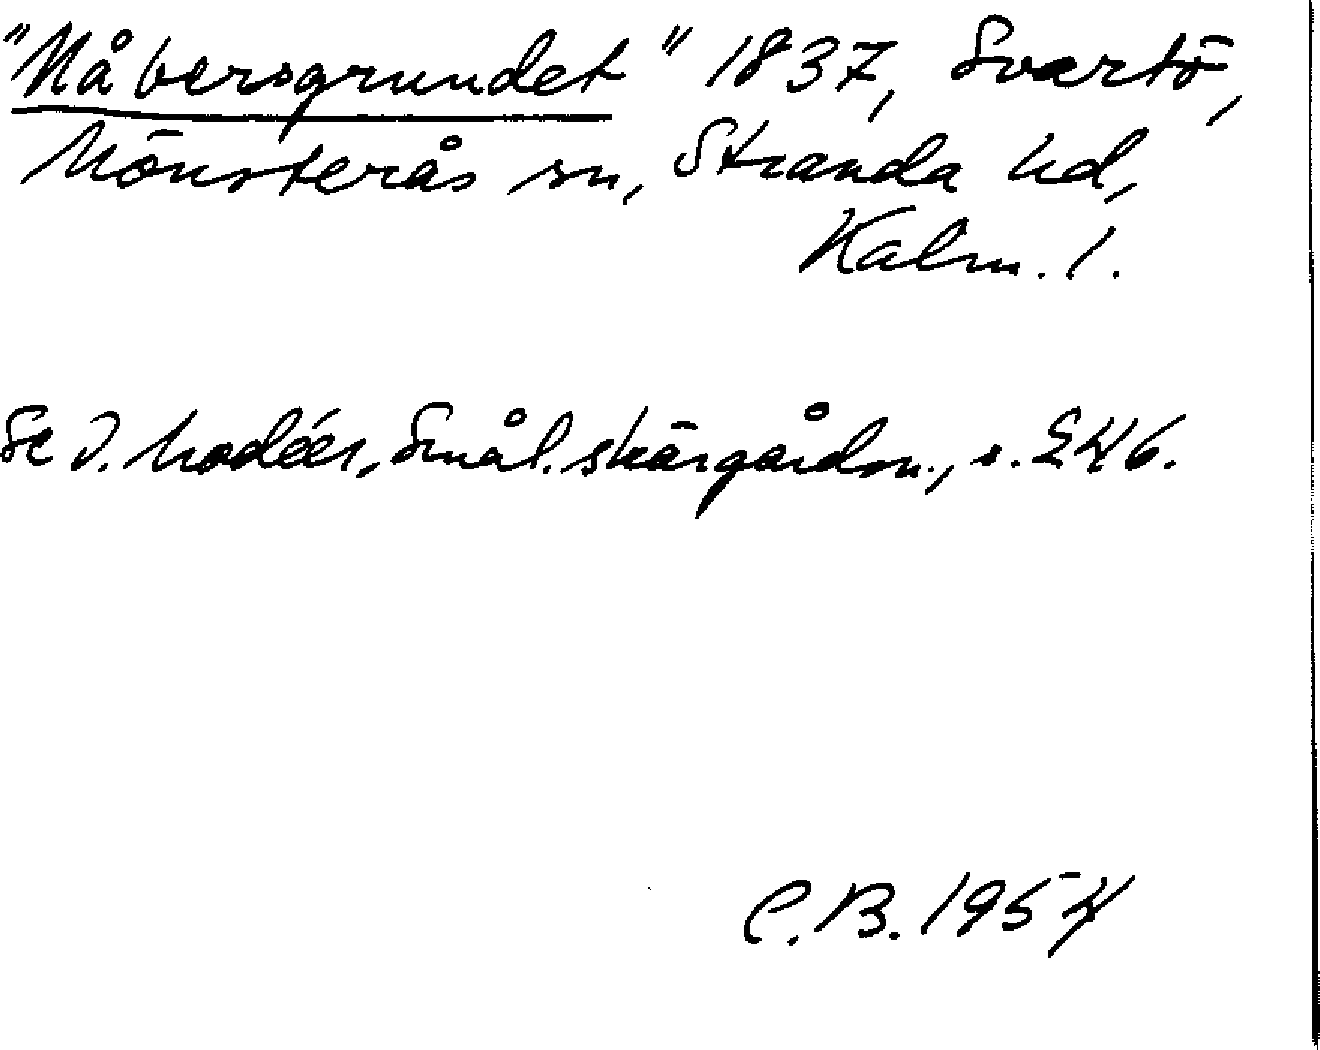 "Måbersgrundet" 1837, Svartö,
Mönsterås sn, Stranda hd,
Kalm. l.
Se I. Modéer, Smål. skärgårdsn., s. 246.
C.B. 1954